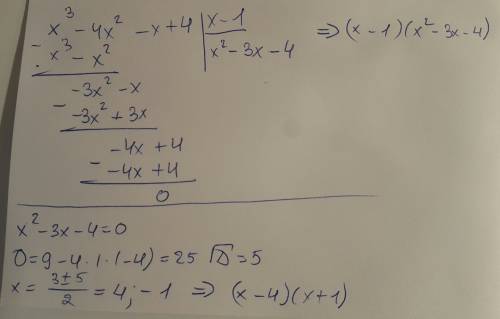 x³ - 4x² - x + 4 | x - 1 ⇒ (x - 1)(x² - 3x - 4)
- x³ - x² | x² - 3x - 4
-3x² - x
- -3x² + 3x
-4x + 4
- -4x + 4
0
x² - 3x - 4 = 0
D = 9 - 4 · 1 · (-4) = 25 √D = 5
x = (3 ± 5)/2 = 4; -1 ⇒ (x - 4)(x + 1)